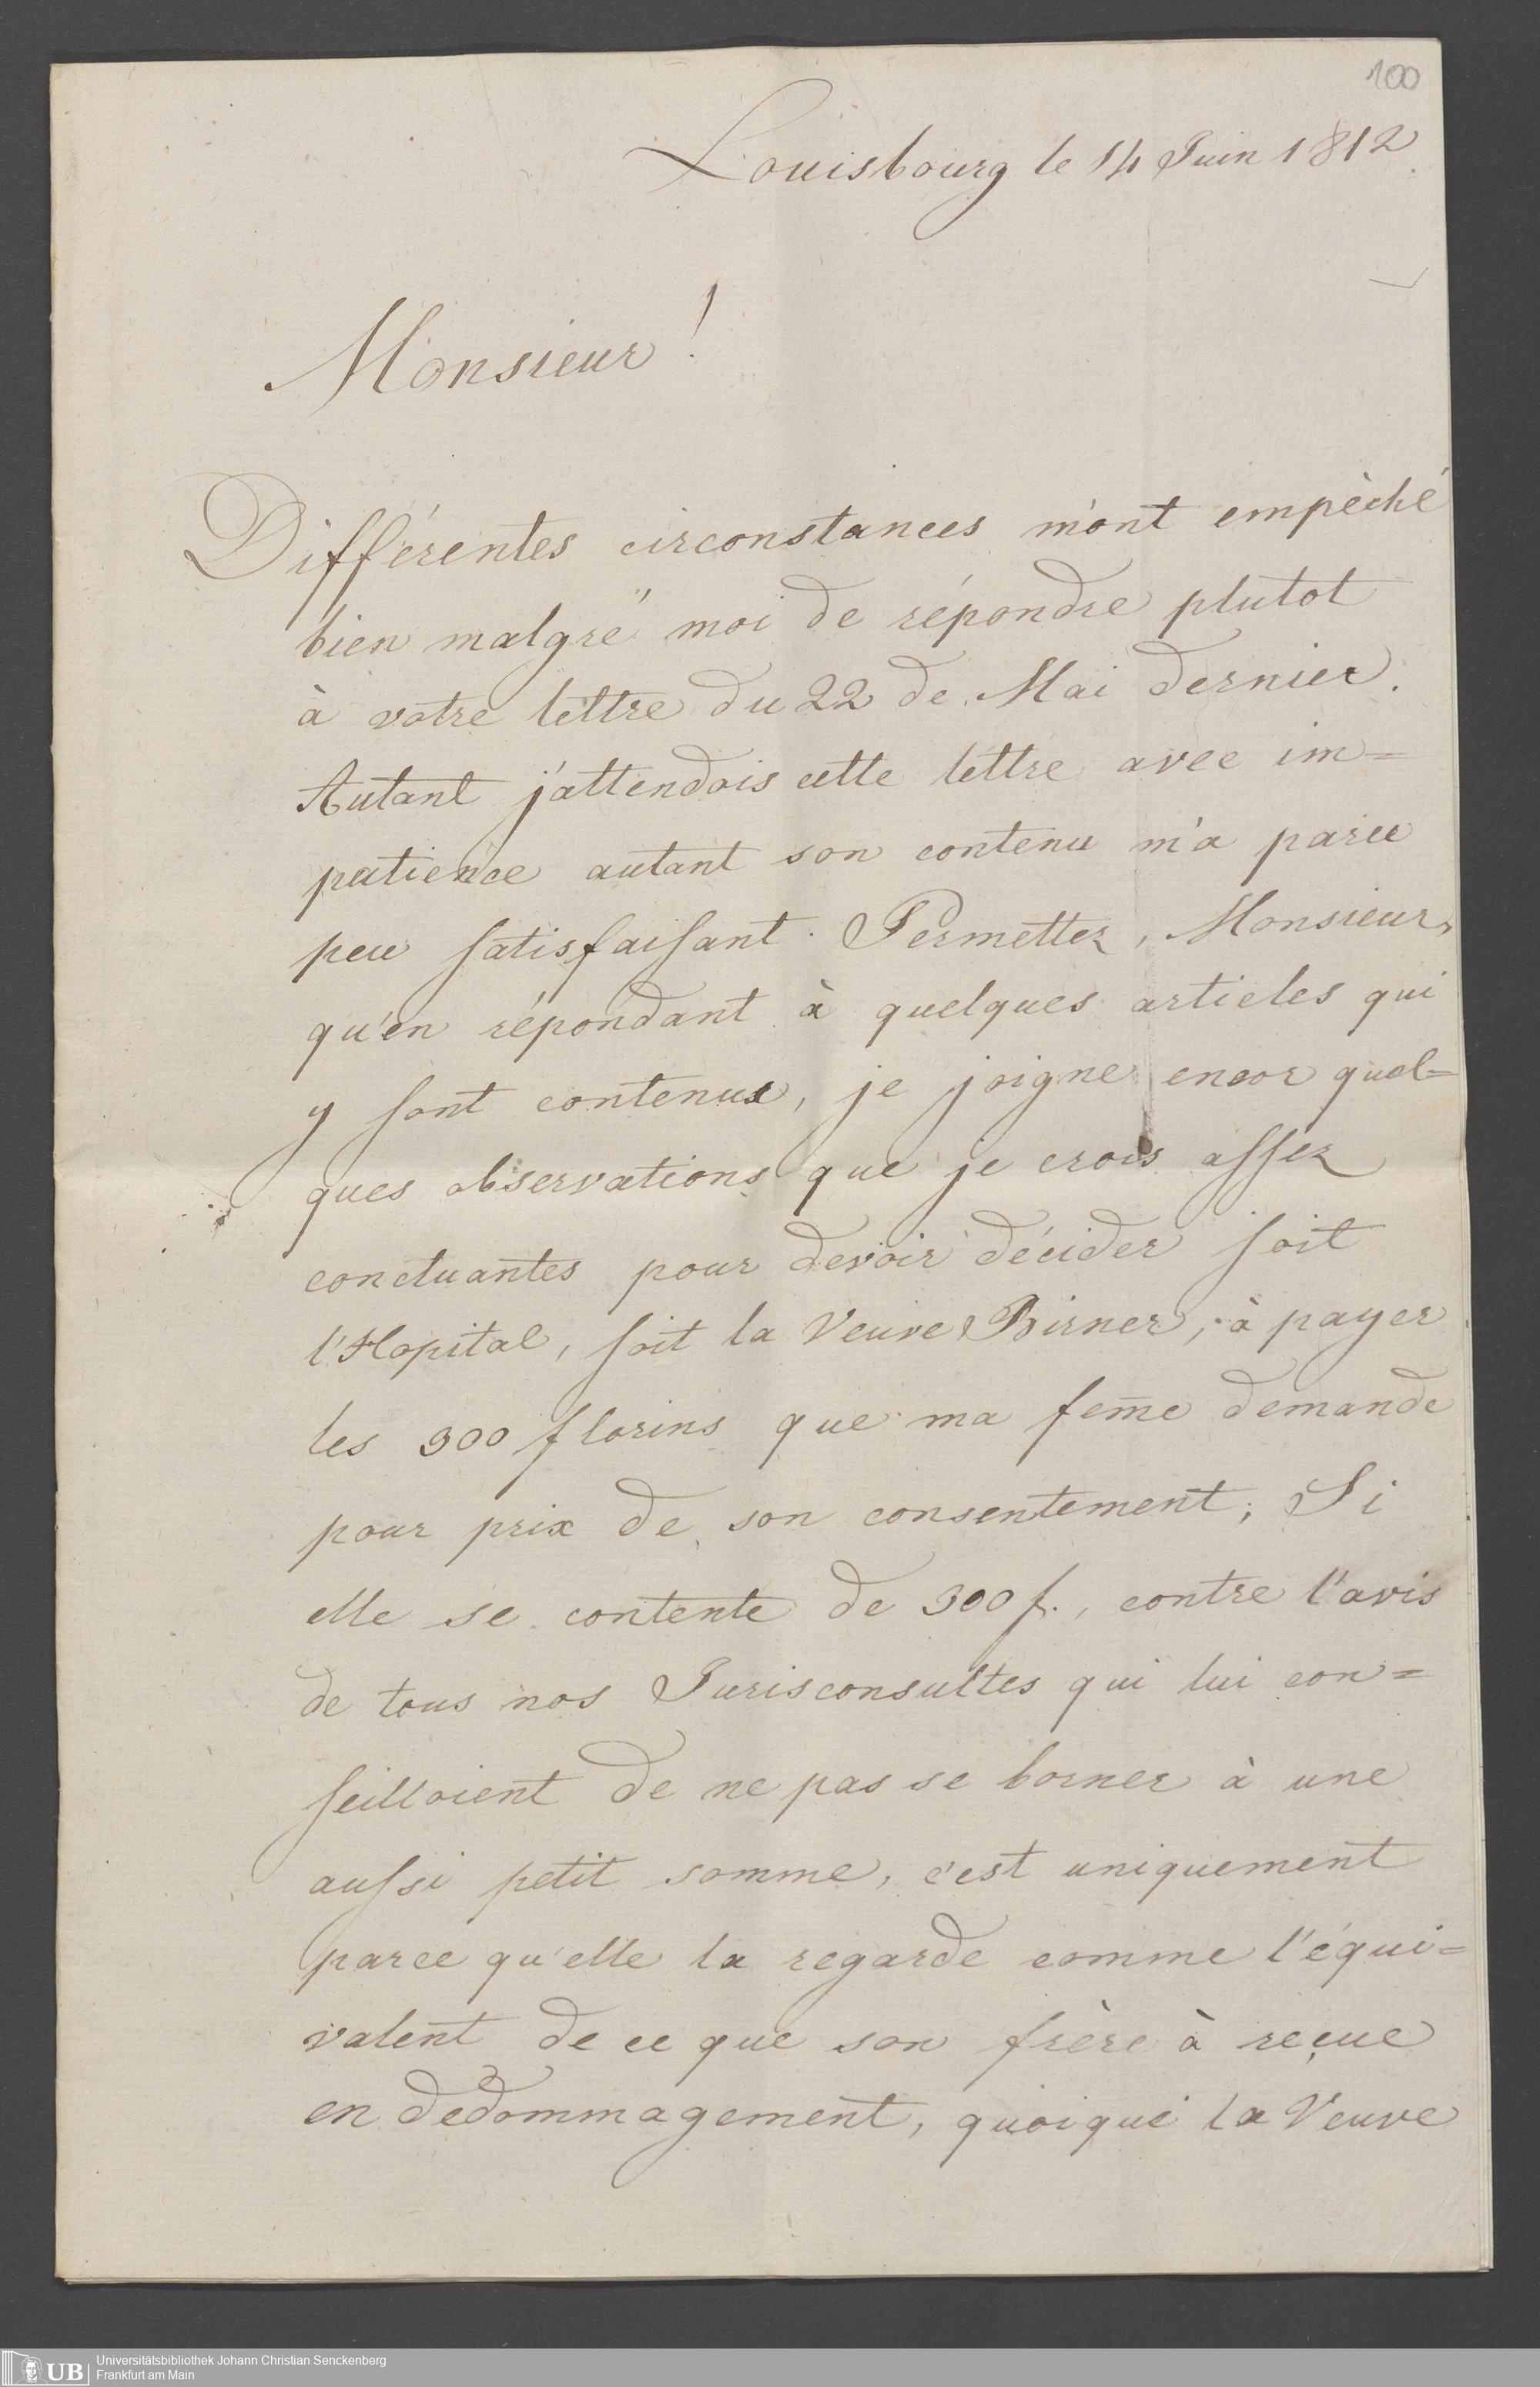 100
Louisbourg le 14 Juin 1812.
Monsieur!
Différentes circonstances m'ont empèché
bien malgré moi de répondre plutot
à votre lettre du 22 de Mai dernier.
Autant j'attendois cette lettre avec im=
patience autant son contenu m'a parue
peu satisfaisant. Permettez, Monsieur,
qu'en répondant à quelques articles qui
y sont contenus, je joigne encor quel=
ques observations que je crois assez
concluantes pour devoir décider soit
l'Hopital, soit la Veuve Birner, à payer
les 300 florins que ma fem̅e demande
pour prix de son consentement; Si
elle se contente de 300 f., contre l'avis
de tous nos Jurisconsultes qui lui con=
seilloient de ne pas se borner à une
aussi petit somme, c'est uniquement
parce qu'elle la regarde comme l'équi=
valent de ce que son frère à reçue
en dedommagement, quoique la Veuve
UB
Universitätsbibliothek Johann Christian Senckenberg
Frankfurt am Main